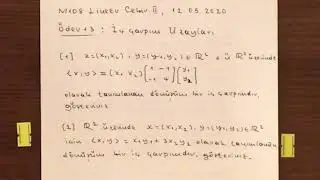 N108 Lineer Cebir II, 12.05.2020
Ödev #3 : İç Çarpım Uzayları
[1] x=(x₁,x₂), y=(y₁,y₂) ∈ ℝ² ℝ² üzerinde
⟨x,y⟩ = (x₁ x₂) [1 -1; -1 4] [y₁; y₂]
olarak tanımlanan dönüşüm bir iç çarpımdır,
gösteriniz.
[2] ℝ² üzerinde x=(x₁,x₂), y=(y₁,y₂) ∈ ℝ²
için ⟨x,y⟩ = x₁y₁ + 3x₂y₂ olarak tanımlanan
dönüşüm bir iç çarpımdır, gösteriniz.